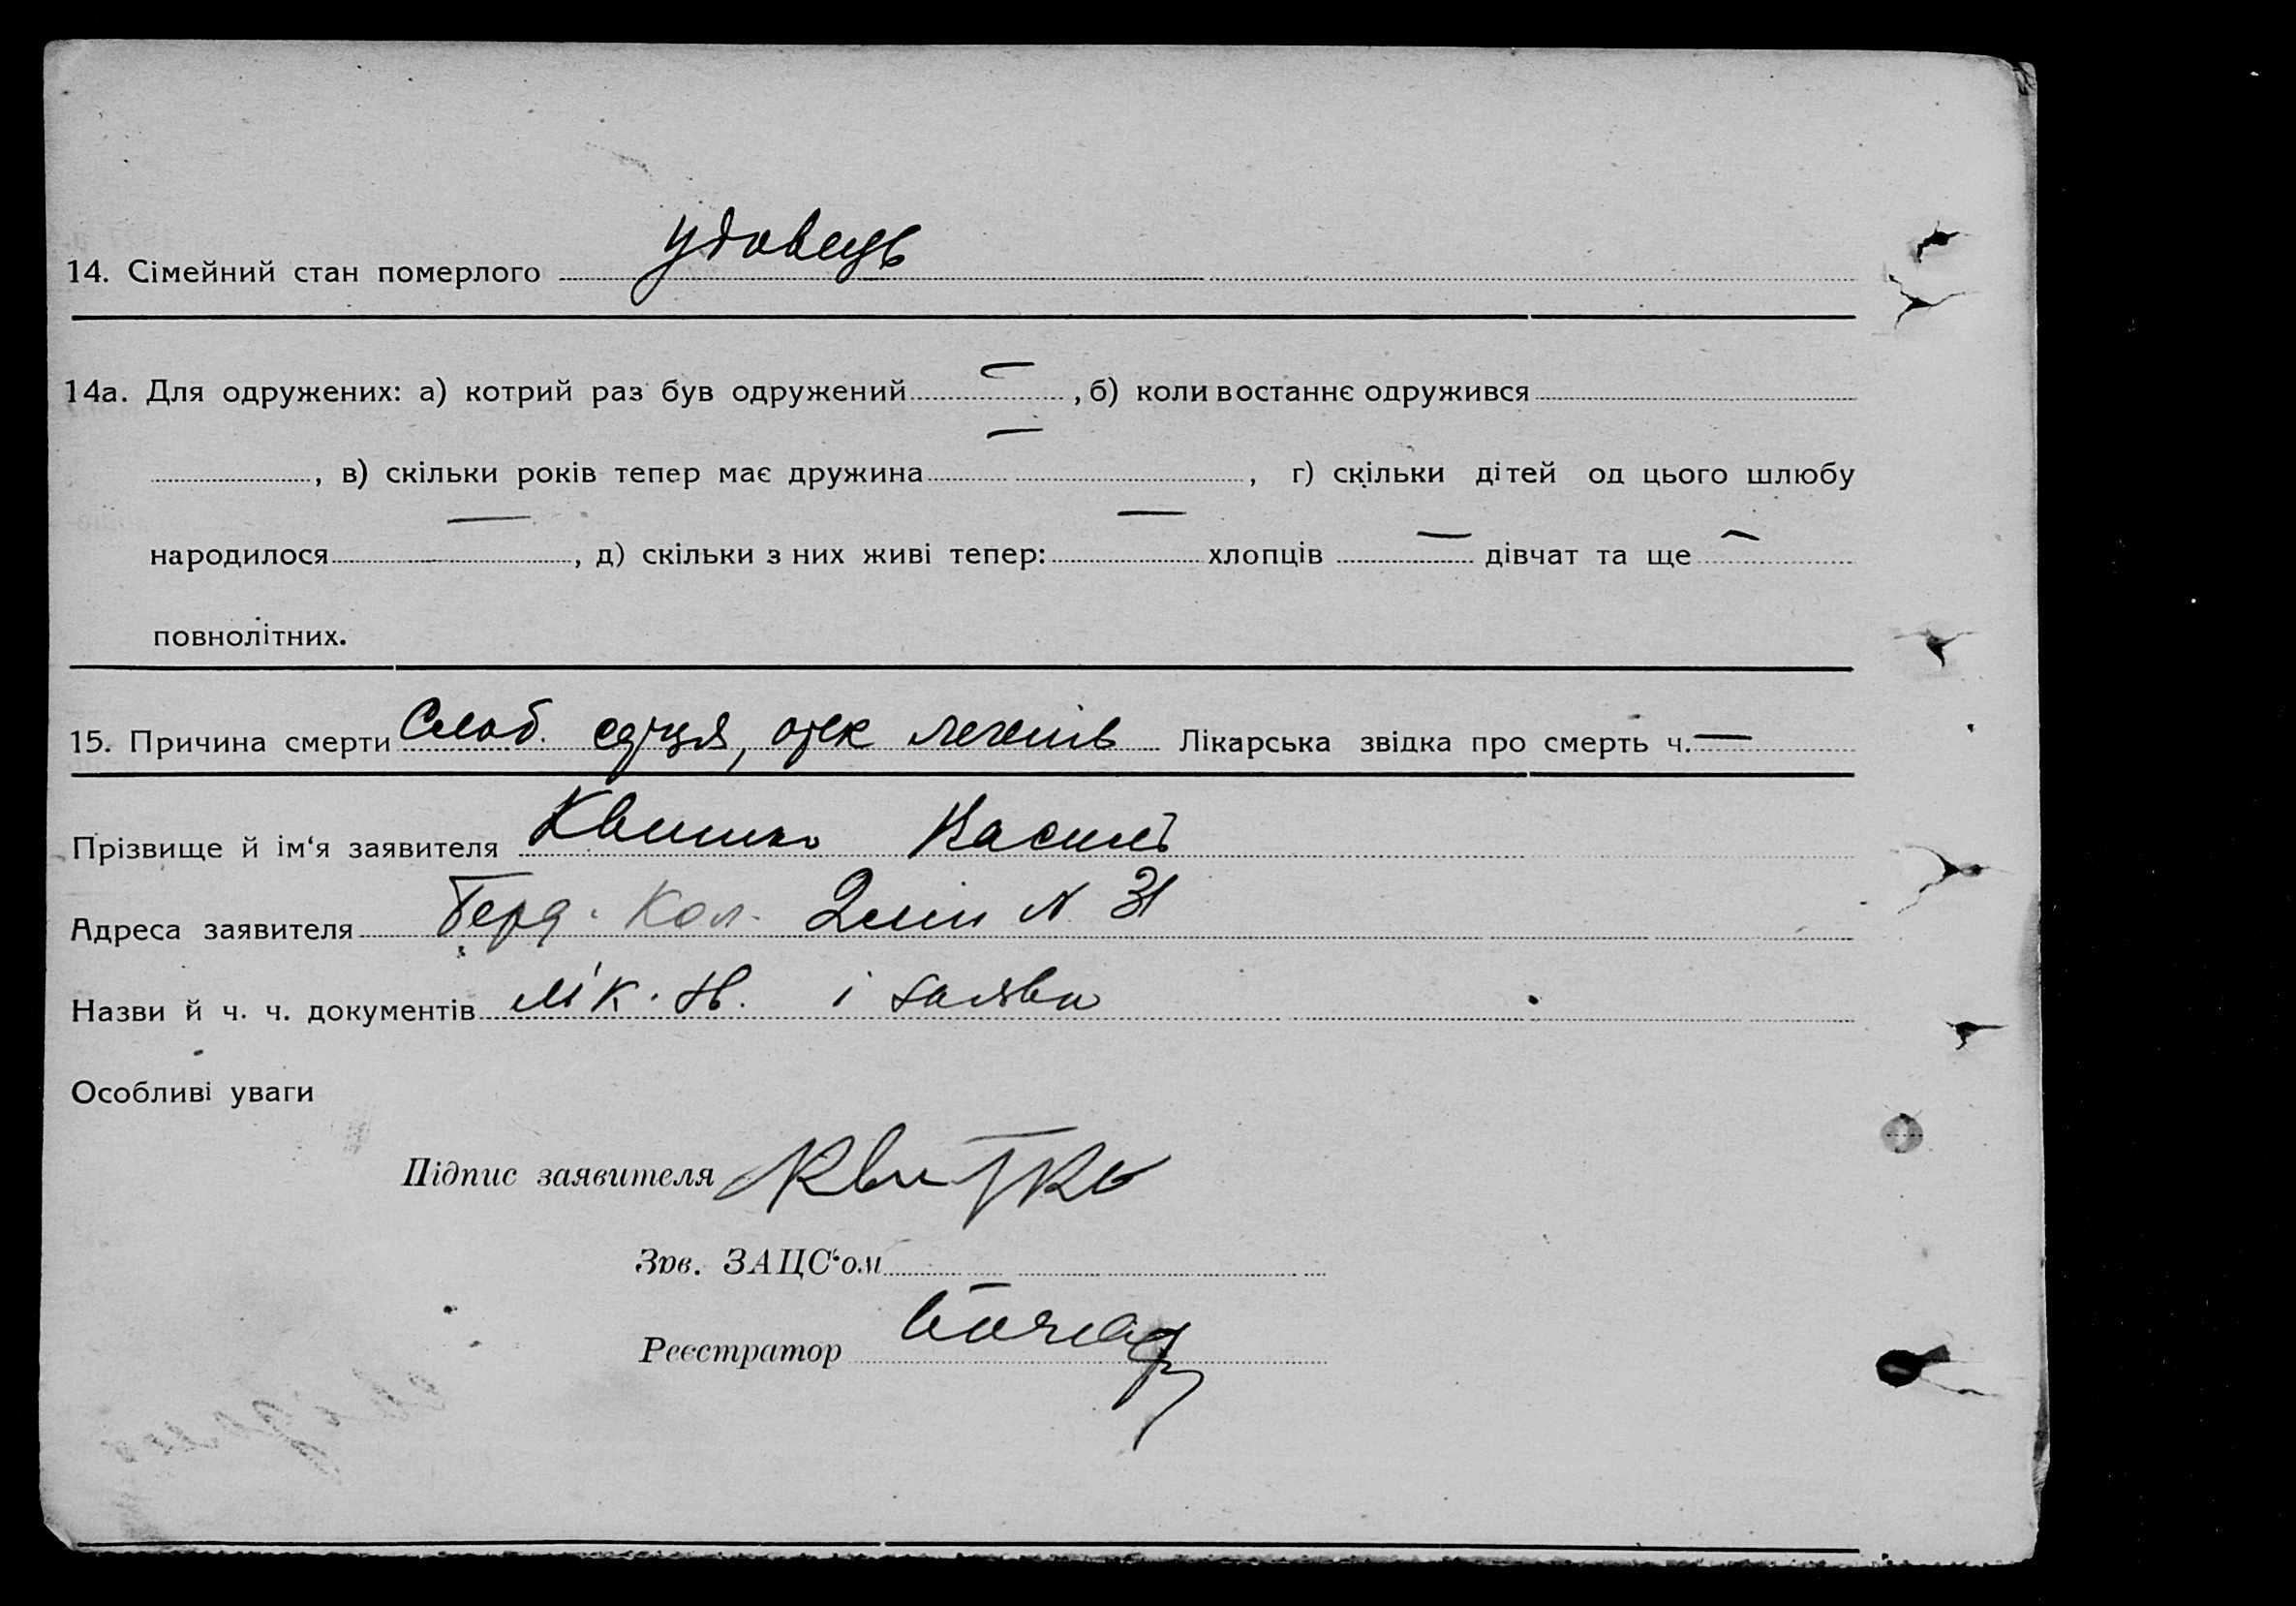 14. Сімейний стан померлого удовець
14а. Для одружених: а) котрий раз був одружений — , б) коли востаннє одружився
, в) скільки років тепер має дружина — , г) скільки дітей од цього шлюбу
народилося — , д) скільки з них живі тепер: — хлопців — дівчат та ще —
повнолітних.
15. Причина смерти Слаб. серця, отек легенів Лікарська звідка про смерть ч. —
Прізвище й ім‘я заявителя Квитко Василь
Адреса заявителя Берд. Кол. 2 лін N 31
Назви й ч. ч. документів лік. і заява
Особливі уваги
Підпис заявителя Квитко
Зав. ЗАЦС‘ом
Реєстратор